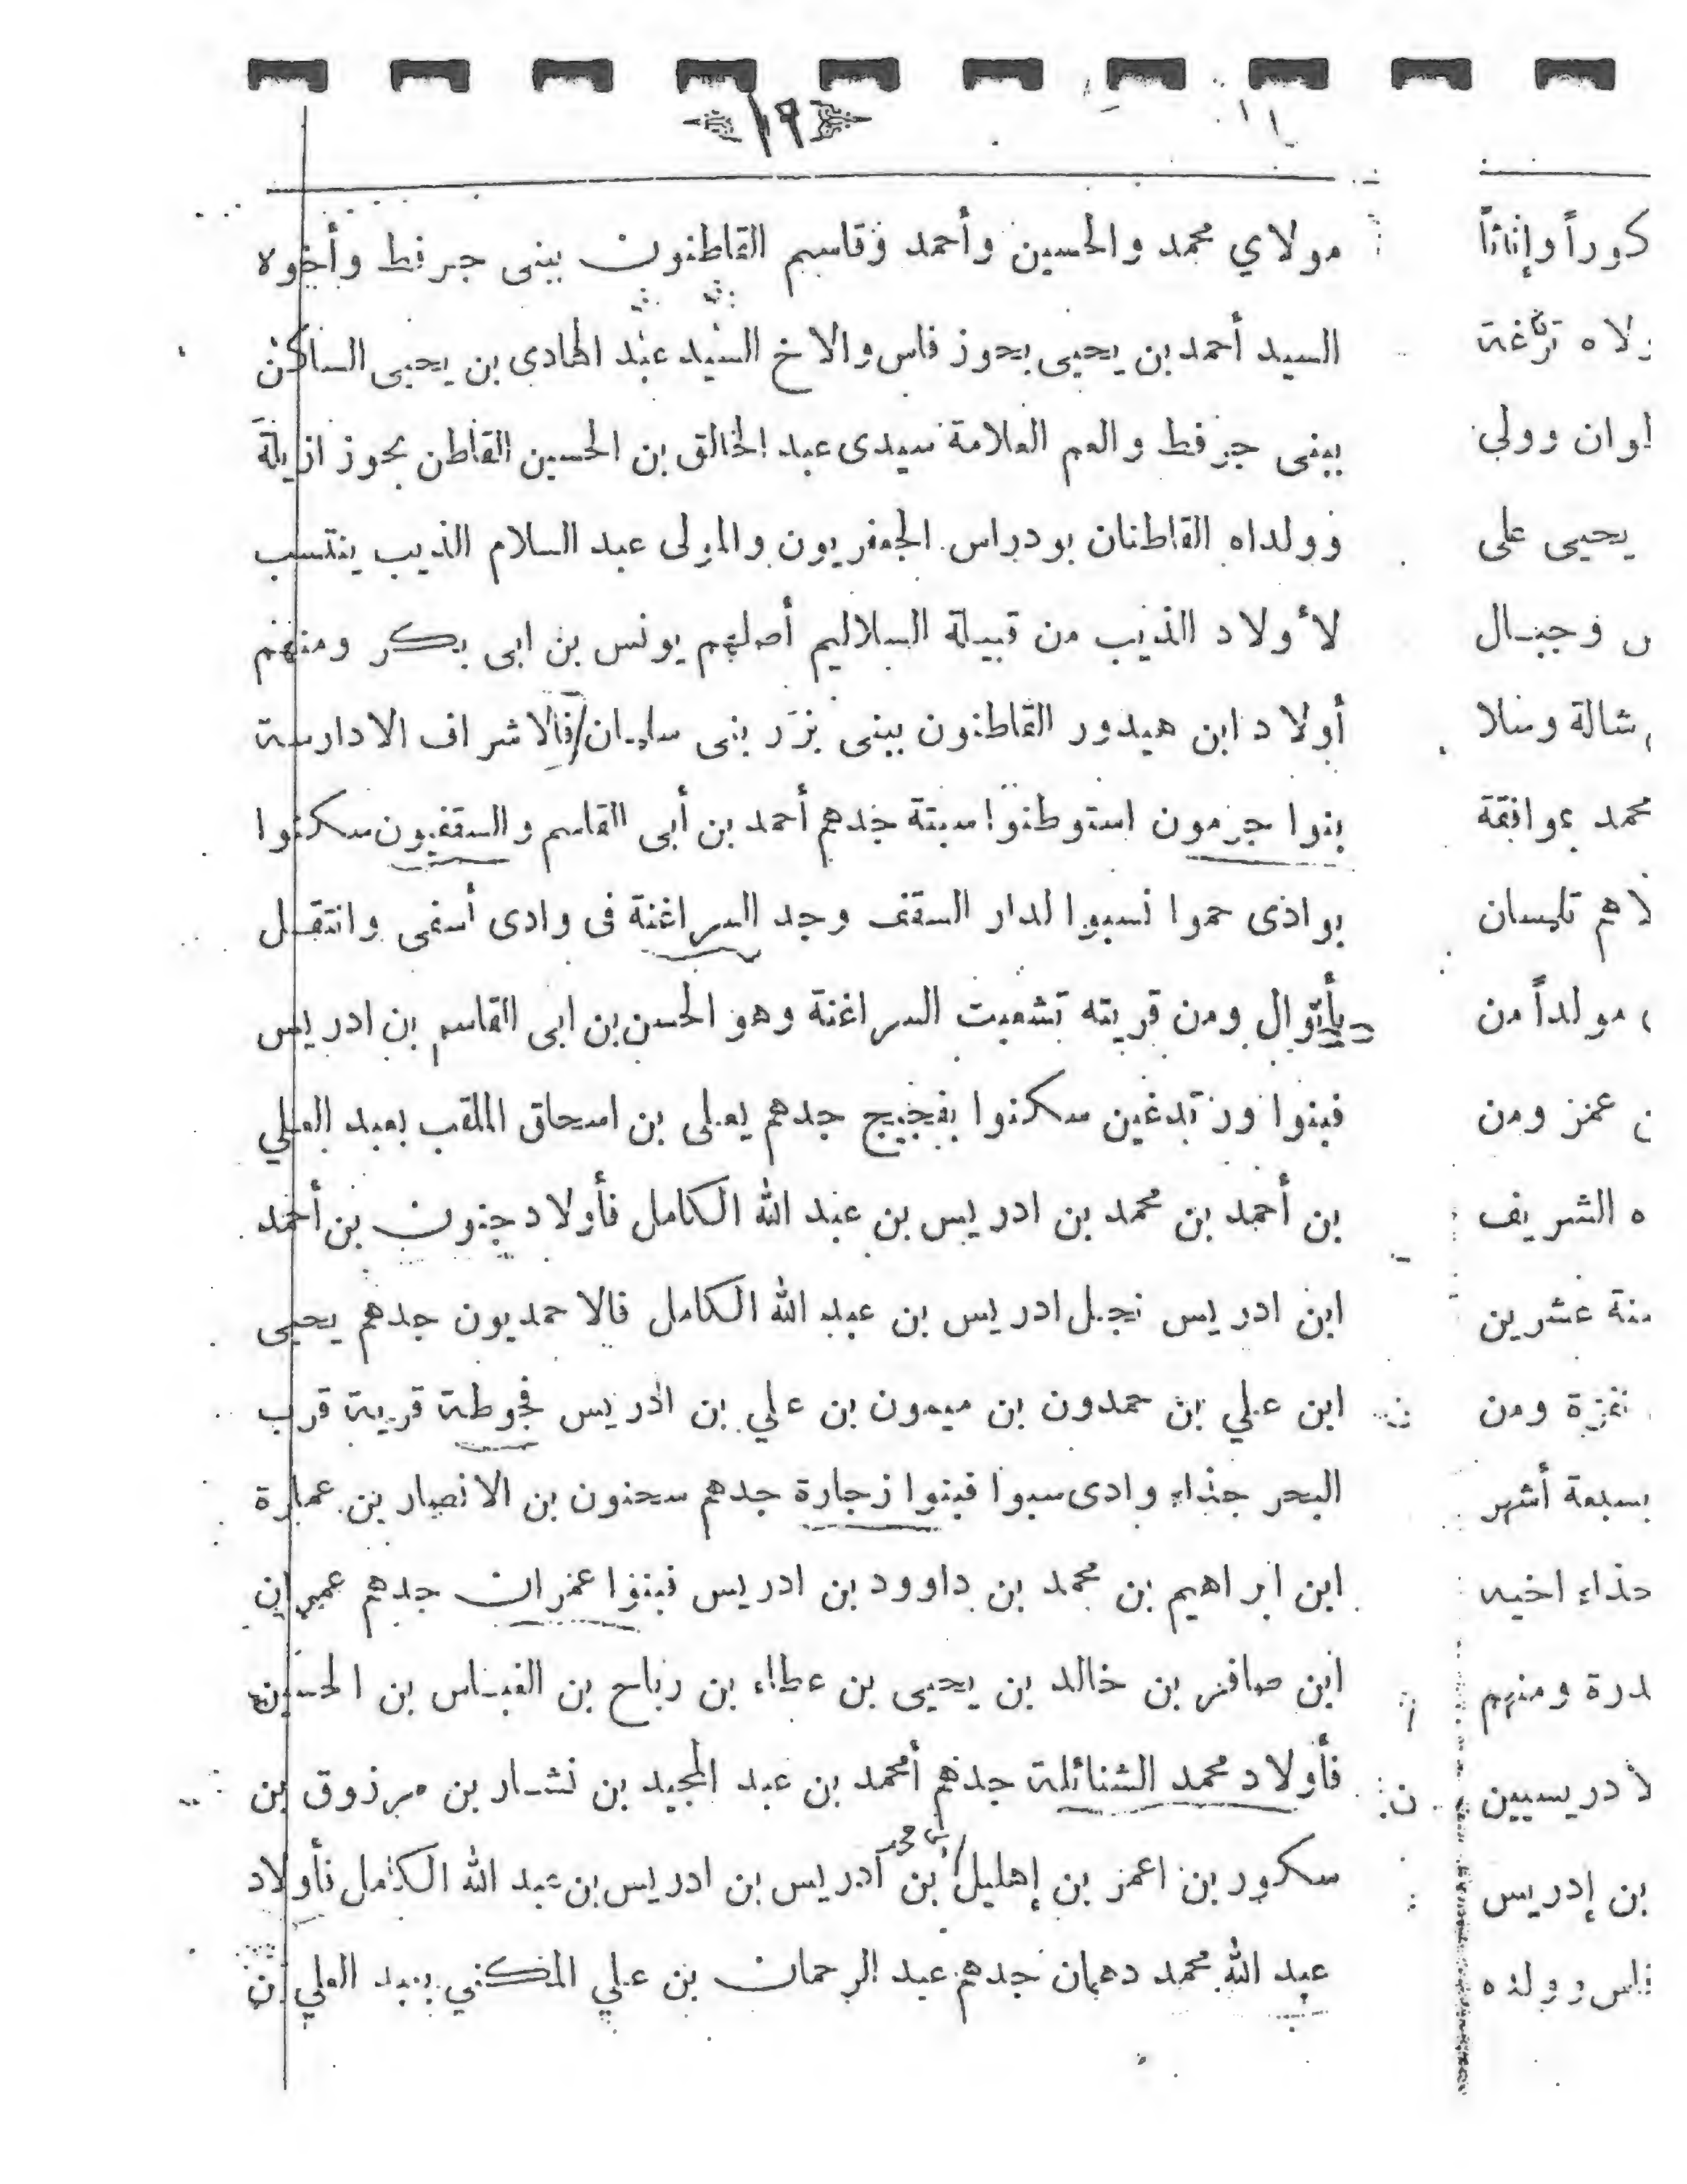 ١٩
مولاي محمد والحسين وأحمد وقاسم القاطنون ببنى جرفط وأخوه
السيد أحمد بن يحيى بحوز فاس والاخ السيد عبد الهادى بن يحيى الساكن
ببنى جرفط والعم العلامة سيدى عبد الخالق بن الحسين القاطن بحوز ازيلة
وولداه القاطنان بودراس الجعفريون والمولى عبد السلام الذيب ينتسب
لأولاد الذيب من قبيلة السلاليم أصلهم يونس بن ابى بكر ومنهم
أولاد ابن هيدور القاطنون ببنى بزر بنى سليمان فالاشراف الادارسة
بنوا جرمون استوطنوا سبتة جدهم أحمد بن أبى القاسم والسقفيون سكنوا
بوادى حموا نسبوا لدار السقف وجد السراغنة فى وادى أسفى وانتقل
ومن قريته تشعبت السراغنة وهو الحسن بن ابى القاسم بن ادريس
فبنوا ورتدغين سكنوا بفجيج جدهم يعلى بن اسحاق الملقب بعبد العلي
بن أحمد بن محمد بن ادريس بن عبد الله الكامل فأولاد جنون بن أحمد
ابن ادريس نجل ادريس بن عبد الله الكامل فالاحمديون جدهم يحيى
ابن علي بن حمدون بن ميمون بن علي بن ادريس فجوطة قرية قرب
البحر حذاء وادى سبوا فبنوا زجارة جدهم سحنون بن الانصار بن عمارة
ابن ابراهيم بن محمد بن داوود بن ادريس فبنوا عمران جدهم عمران
ابن صافر بن خالد بن يحيى بن عطاء بن رباح بن العباس بن الحسين
فأولاد محمد الشنائلة جدهم أمحمد بن عبد المجيد بن نشار بن مرزوق بن
سكور بن اعمر بن إهليل بن محمد بن ادريس بن ادريس بن عبد الله الكامل فأولاد
عبد الله محمد دهمان جدهم عبد الرحمان بن علي المكني بعبد العلي بن
كوراً وإناثاً
ولاه ترغة
وان وولي
يحيى على
وجبال
شالة وسلا
محمد بموافقة
لاهم تلمسان
مولداً من
عمر ومن
ه الشريف
سنة عشرين
ومن
بسبعة أشهر
حذاء اخيه
درة ومنهم
لادريسيين
بن إدريس
فاس وولده